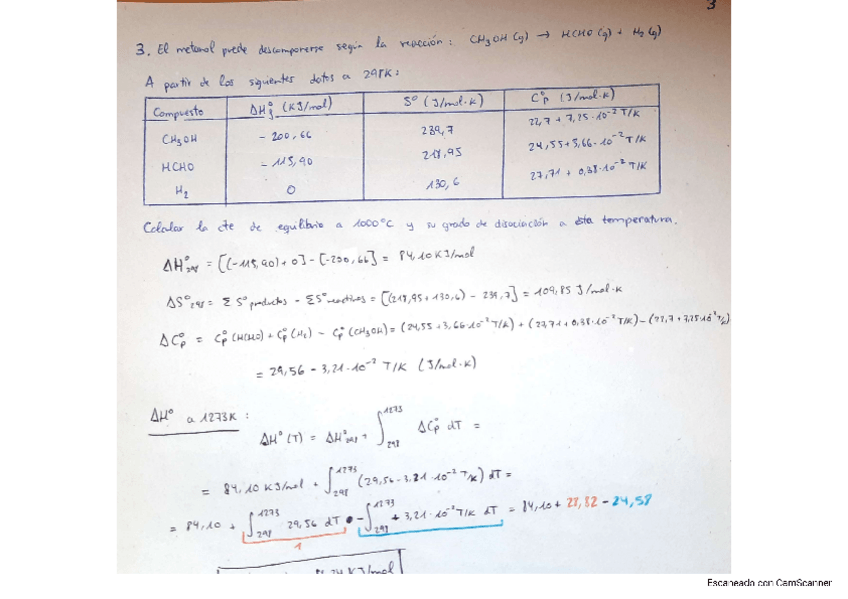 3
3. El metanol puede descomponerse según la reacción: CH3OH (g) → HCHO (g) + H2 (g)
A partir de los siguientes datos a 298K:
Compuesto ΔHf° (KJ/mol) S° (J/mol·K) Cp° (J/mol·K)
CH3OH - 200,66 239,7 22,7 + 7,25·10⁻² T/K
HCHO - 115,90 218,95 24,55 + 3,66·10⁻² T/K
H2 0 130,6 27,71 + 0,38·10⁻² T/K
Calcular la cte de equilibrio a 1000°C y su grado de disociación a esta temperatura.
ΔH°298 = [(-115,90) + 0] - [-200,66] = 84,10 KJ/mol
ΔS°298 = Σ S° productos - ΣS° reactivos = [(218,95 + 130,6) - 239,7] = 109,85 J/mol·K
ΔCp° = Cp° (HCHO) + Cp° (H2) - Cp° (CH3OH) = (24,55 + 3,66·10⁻² T/K) + (27,71 + 0,38·10⁻² T/K) - (22,7 + 7,25·10⁻² T/K)
= 29,56 - 3,21·10⁻² T/K (J/mol·K)
ΔH° a 1273K:
ΔH° (T) = ΔH°298 + ∫298 1273 ΔCp° dT =
= 84,10 KJ/mol + ∫298 1273 (29,56 - 3,21·10⁻² T/K) dT =
= 84,10 + ∫298 1273 29,56 dT - ∫298 1273 + 3,21·10⁻² T/K dT = 84,10 + 28,82 - 24,58
1
KJ/mol
Escaneado con CamScanner